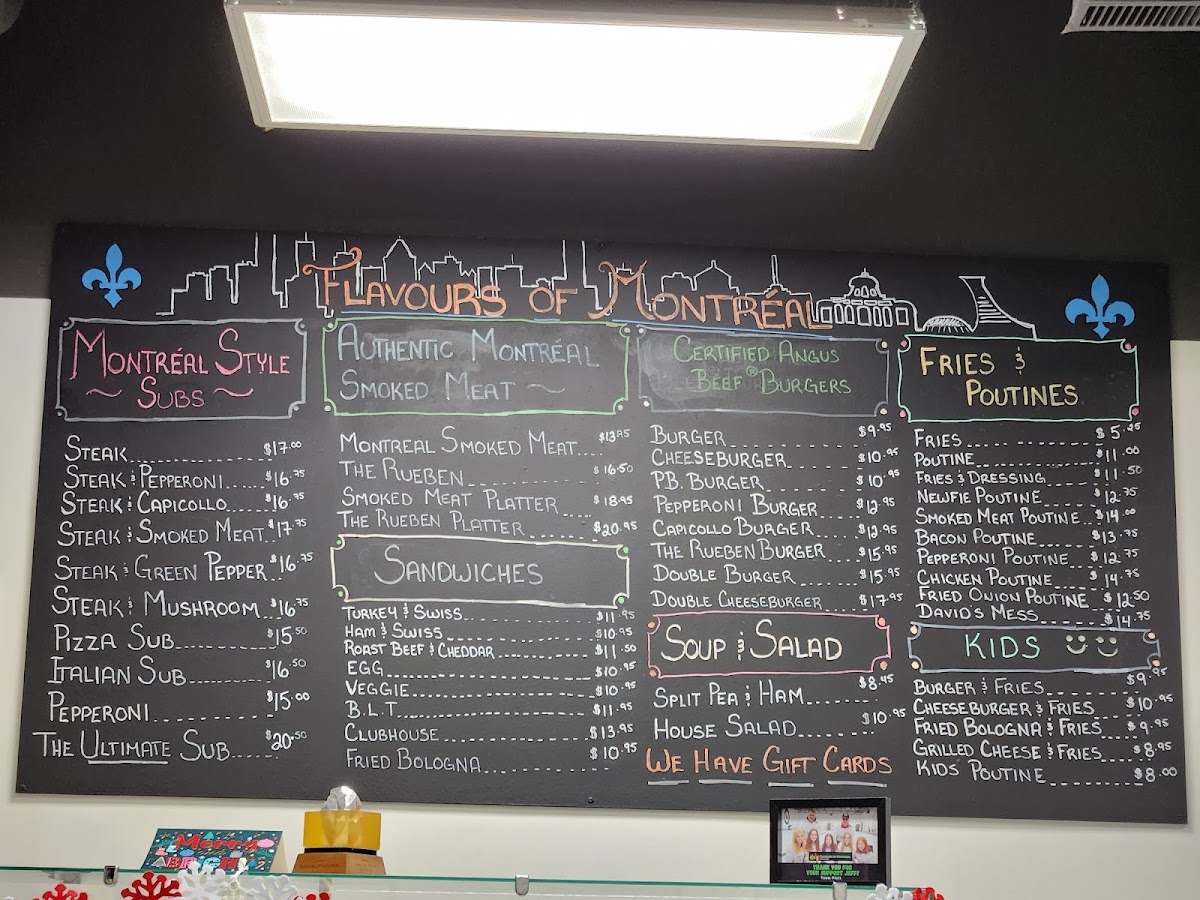 FLAVOURS OF MONTRÉAL
MONTRÉAL STYLE
~ SUBS ~
STEAK $17.00
STEAK & PEPPERONI $16.75
STEAK & CAPICOLLO $16.75
STEAK & SMOKED MEAT $17.75
STEAK & GREEN PEPPER $16.75
STEAK & MUSHROOM $16.75
PIZZA SUB $15.50
ITALIAN SUB $16.50
PEPPERONI $15.00
THE ULTIMATE SUB $20.50
AUTHENTIC MONTRÉAL
SMOKED MEAT ~
MONTREAL SMOKED MEAT $13.95
THE RUEBEN $16.50
SMOKED MEAT PLATTER $18.95
THE RUEBEN PLATTER $20.95
SANDWICHES
TURKEY & SWISS $11.95
HAM & SWISS $10.95
ROAST BEEF & CHEDDAR $11.50
EGG $10.95
VEGGIE $10.95
B.L.T $11.95
CLUBHOUSE $13.95
FRIED BOLOGNA $10.95
CERTIFIED ANGUS
BEEF® BURGERS
BURGER $9.95
CHEESEBURGER $10.95
P.B. BURGER $10.95
PEPPERONI BURGER $12.95
CAPICOLLO BURGER $12.95
THE RUEBEN BURGER $15.95
DOUBLE BURGER $15.95
DOUBLE CHEESEBURGER $17.95
SOUP & SALAD
SPLIT PEA & HAM $8.45
HOUSE SALAD $10.95
WE HAVE GIFT CARDS
FRIES &
POUTINES
FRIES $5.25
POUTINE $11.00
FRIES & DRESSING $11.50
NEWFIE POUTINE $12.75
SMOKED MEAT POUTINE $14.00
BACON POUTINE $13.75
PEPPERONI POUTINE $12.75
CHICKEN POUTINE $14.75
FRIED ONION POUTINE $12.50
DAVID'S MESS $14.75
KIDS
BURGER & FRIES $9.95
CHEESEBURGER & FRIES $10.95
FRIED BOLOGNA & FRIES $9.95
GRILLED CHEESE & FRIES $8.95
KIDS POUTINE $8.00
Merry
THANK YOU FOR
YOUR SUPPORT JEFF!